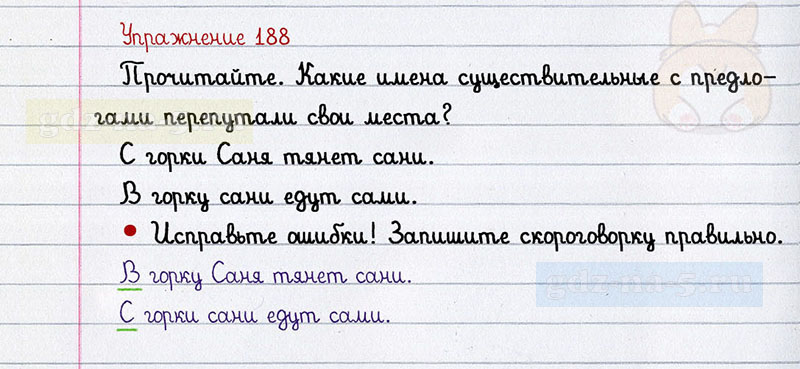 Упражнение 188
Прочитайте. Какие имена существительные с предло-
гами перепутали свои места?
С горки Саня тянет сани.
В горку сани едут сами.
• Исправьте ошибки! Запишите скороговорку правильно.
В горку Саня тянет сани.
С горки сани едут сами.
gdz-na-5.ru